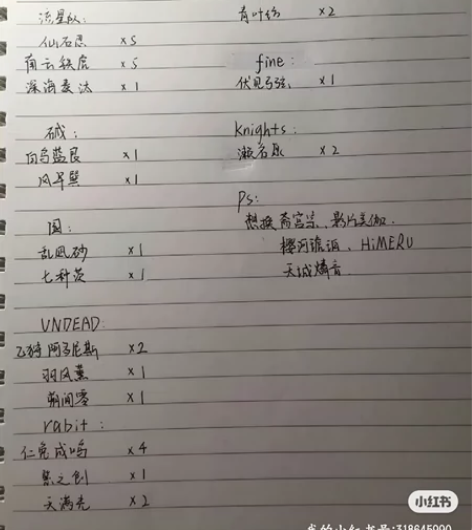 流星队:
仙石忍 ×5
南云铁虎 ×5
深海奏汰 ×1
碱:
白鸟蓝良 ×1
风早巽 ×1
围:
乱凪砂 ×1
七种茨 ×1
UNDEAD:
乙狩阿多尼斯 ×2
羽风薰 ×1
朔间零 ×1
rabit:
仁兔成鸣 ×4
紫之创 ×1
天满光 ×2
×2
fine:
伏见弓弦 ×1
knights:
濑名泉 ×2
Ps:
想换斋宫宗、影片美伽、
樱河琥珀、HiMERU
天城燐音
小红书
小红书号:318645990